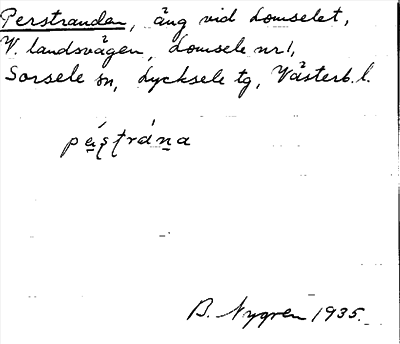 Perstrandan, äng vid Lomselet,
V. landsvägen, Lomsele nr 1,
Sorsele sn, Lycksele tg, Västerb. l.
pa̲ʹs̨t̨ráṉa
B. Nygren 1935.